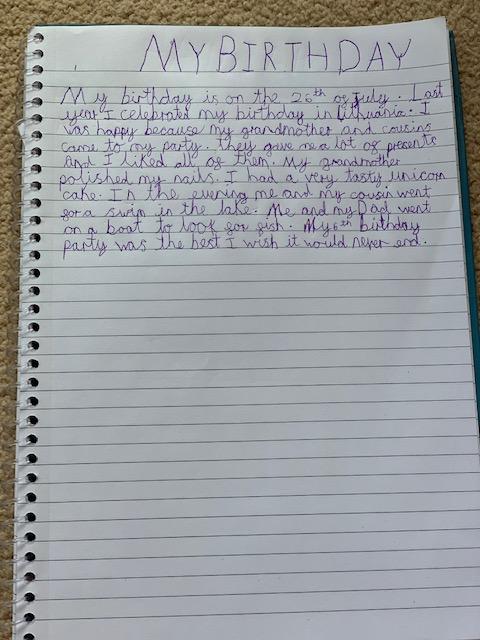 MY BIRTHDAY
My birthday is on the 26th of July. Last
year I celebrated my birthday in Lithuania. I
was happy because my grandmother and cousins
came to my party. they gave me a lot of presents
And I liked all of them. My grandmother
polished my nails. I had a very tasty unicorn
cake. In the evening me and my cousin went
for a swim in the lake. Me and my Dad went
on a boat to look for fish. My 6th birthday
party was the best I wish it would never end.